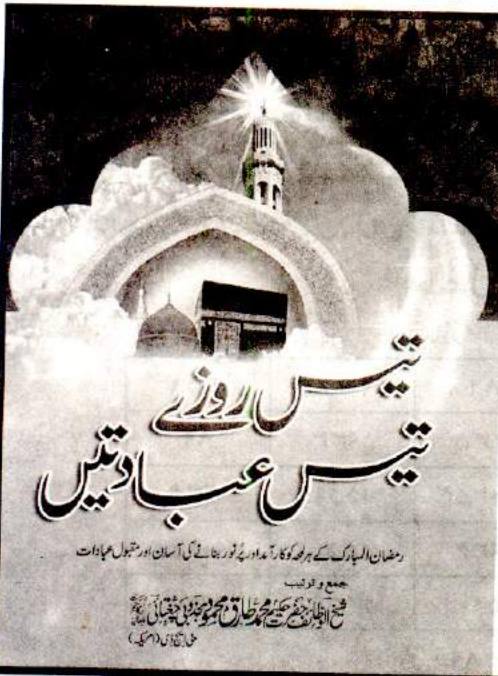 تیس روزے
تیس عبادتیں
رمضان المبارک کے ہر لمحہ کو کارآمد اور پُر نور بنانے کی آسان اور مقبول عبادات
جمع و ترتیب
شیخ الوظائف حضرت حکیم محمد طارق محمود مجذوبی چغتائی
پی ایچ ڈی (امریکہ)